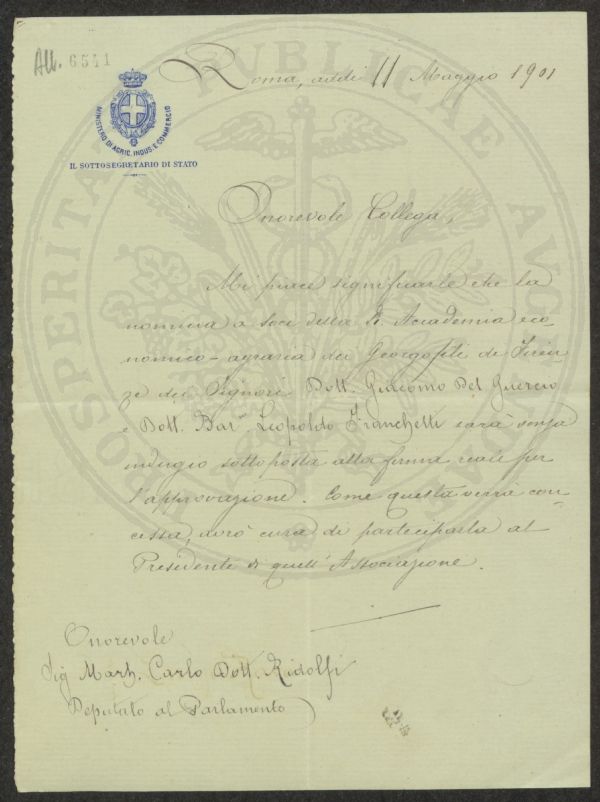 All. 6541
Roma, addì 11 Maggio 1901
MINISTERO DI AGRIC. INDUS. E COMMERCIO
IL SOTTOSEGRETARIO DI STATO
PROSPERITATI PUBLICAE AUGENDAE
Onorevole Collega,
Mi piace significarle che la
nomina a soci della R. Accademia eco-
nomico-agraria dei Georgofili di Firen-
ze dei Signori Dott. Giacomo Del Guercio
e Dott. Bar.ne Leopoldo Franchetti sarà senza
indugio sottoposta alla firma reale per
l'approvazione. Come questa verrà con-
cessa, avrò cura di parteciparla al
Presidente di quell'Associazione.
Onorevole
Sig. March. Carlo Dott. Ridolfi
Deputato al Parlamento